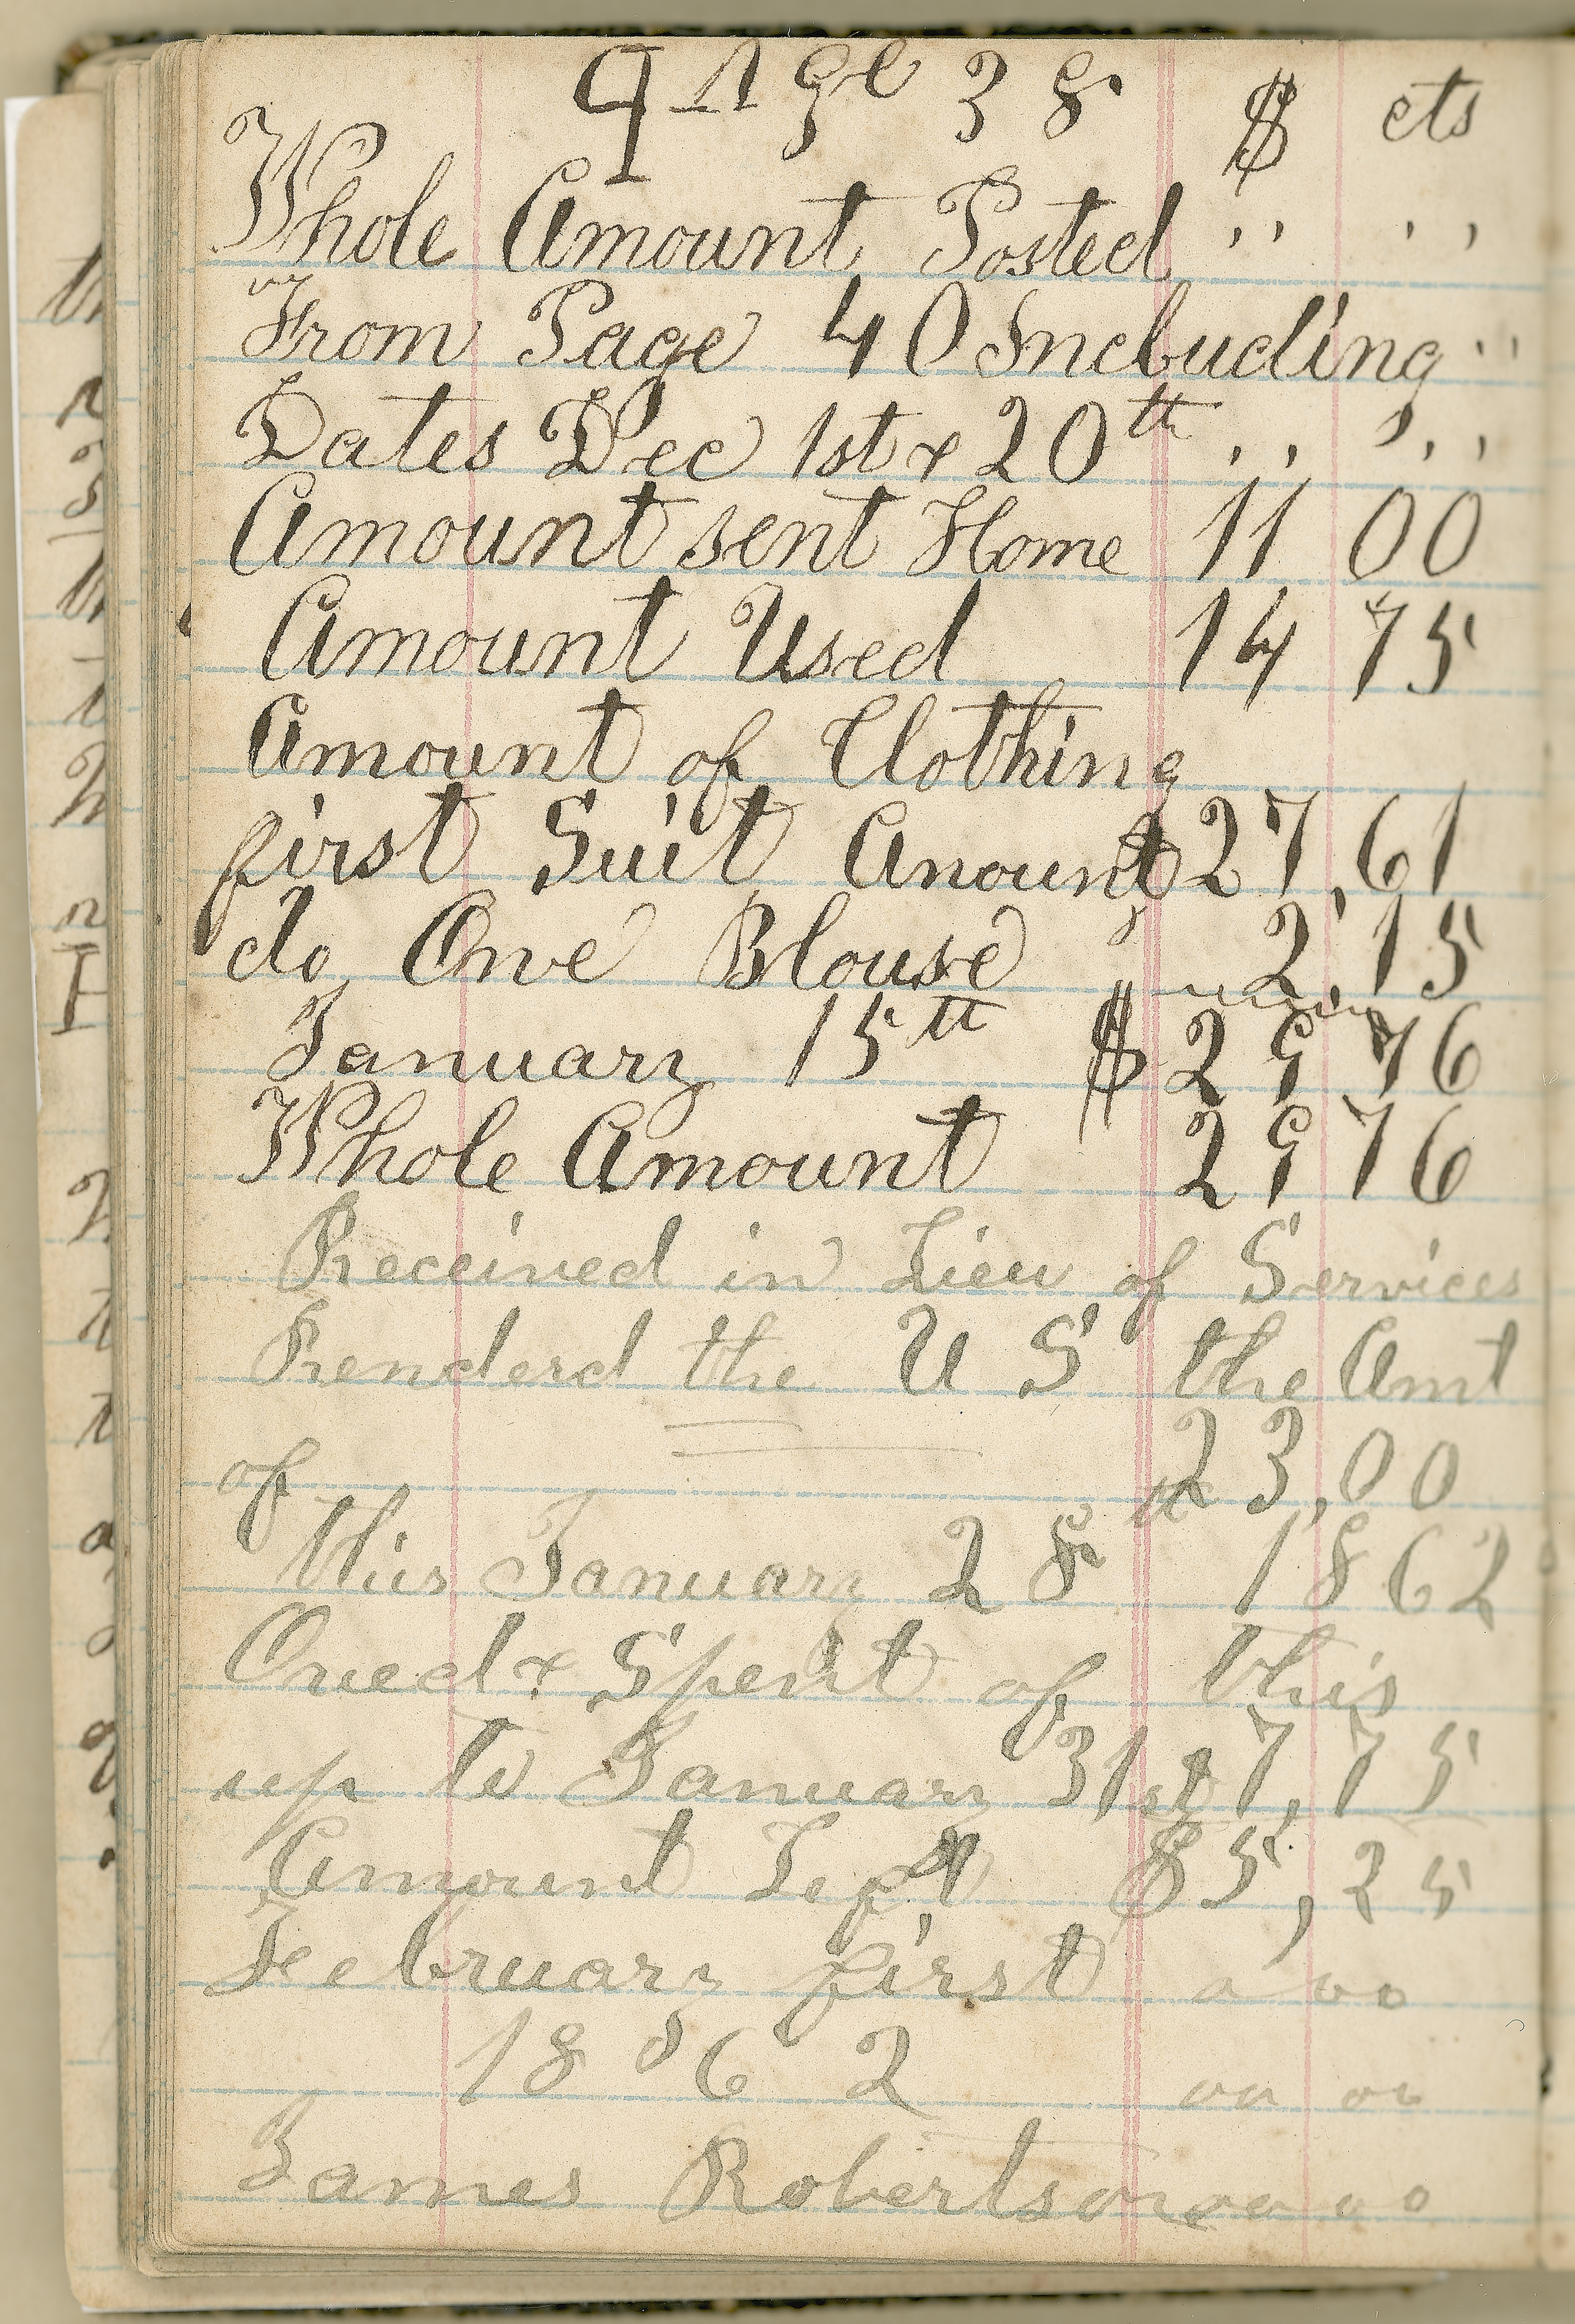 Page 38 $ cts
Whole Amount Posted " "
From Page 40 Including "
Dates Dec 1st & 20th " "
Amount sent Home 11 00
Amount Used 14 75
Amount of Clothing
first Suit Anount $27,61
do One Blouse 2,15
January 15tt $29 76
Whole Amount 29 76
Received in Lieu of Services
Renderd the U S the Amt
of 23,00
this January 28tt 1862
Owed & Spent of this
up to January 31st 17,75
Amount Kept $5,25
February first
1862
James Robertson